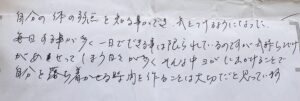 自分の体の弱点を知る事ができ、気をつけるようになった。
毎日する事が多く一日でできる事は限られているのですが気持ちだけ
があせってしまう日々が多く そんな中ヨガをすることで
自分を落ち着かせる時間を作ることは大切だと思っています